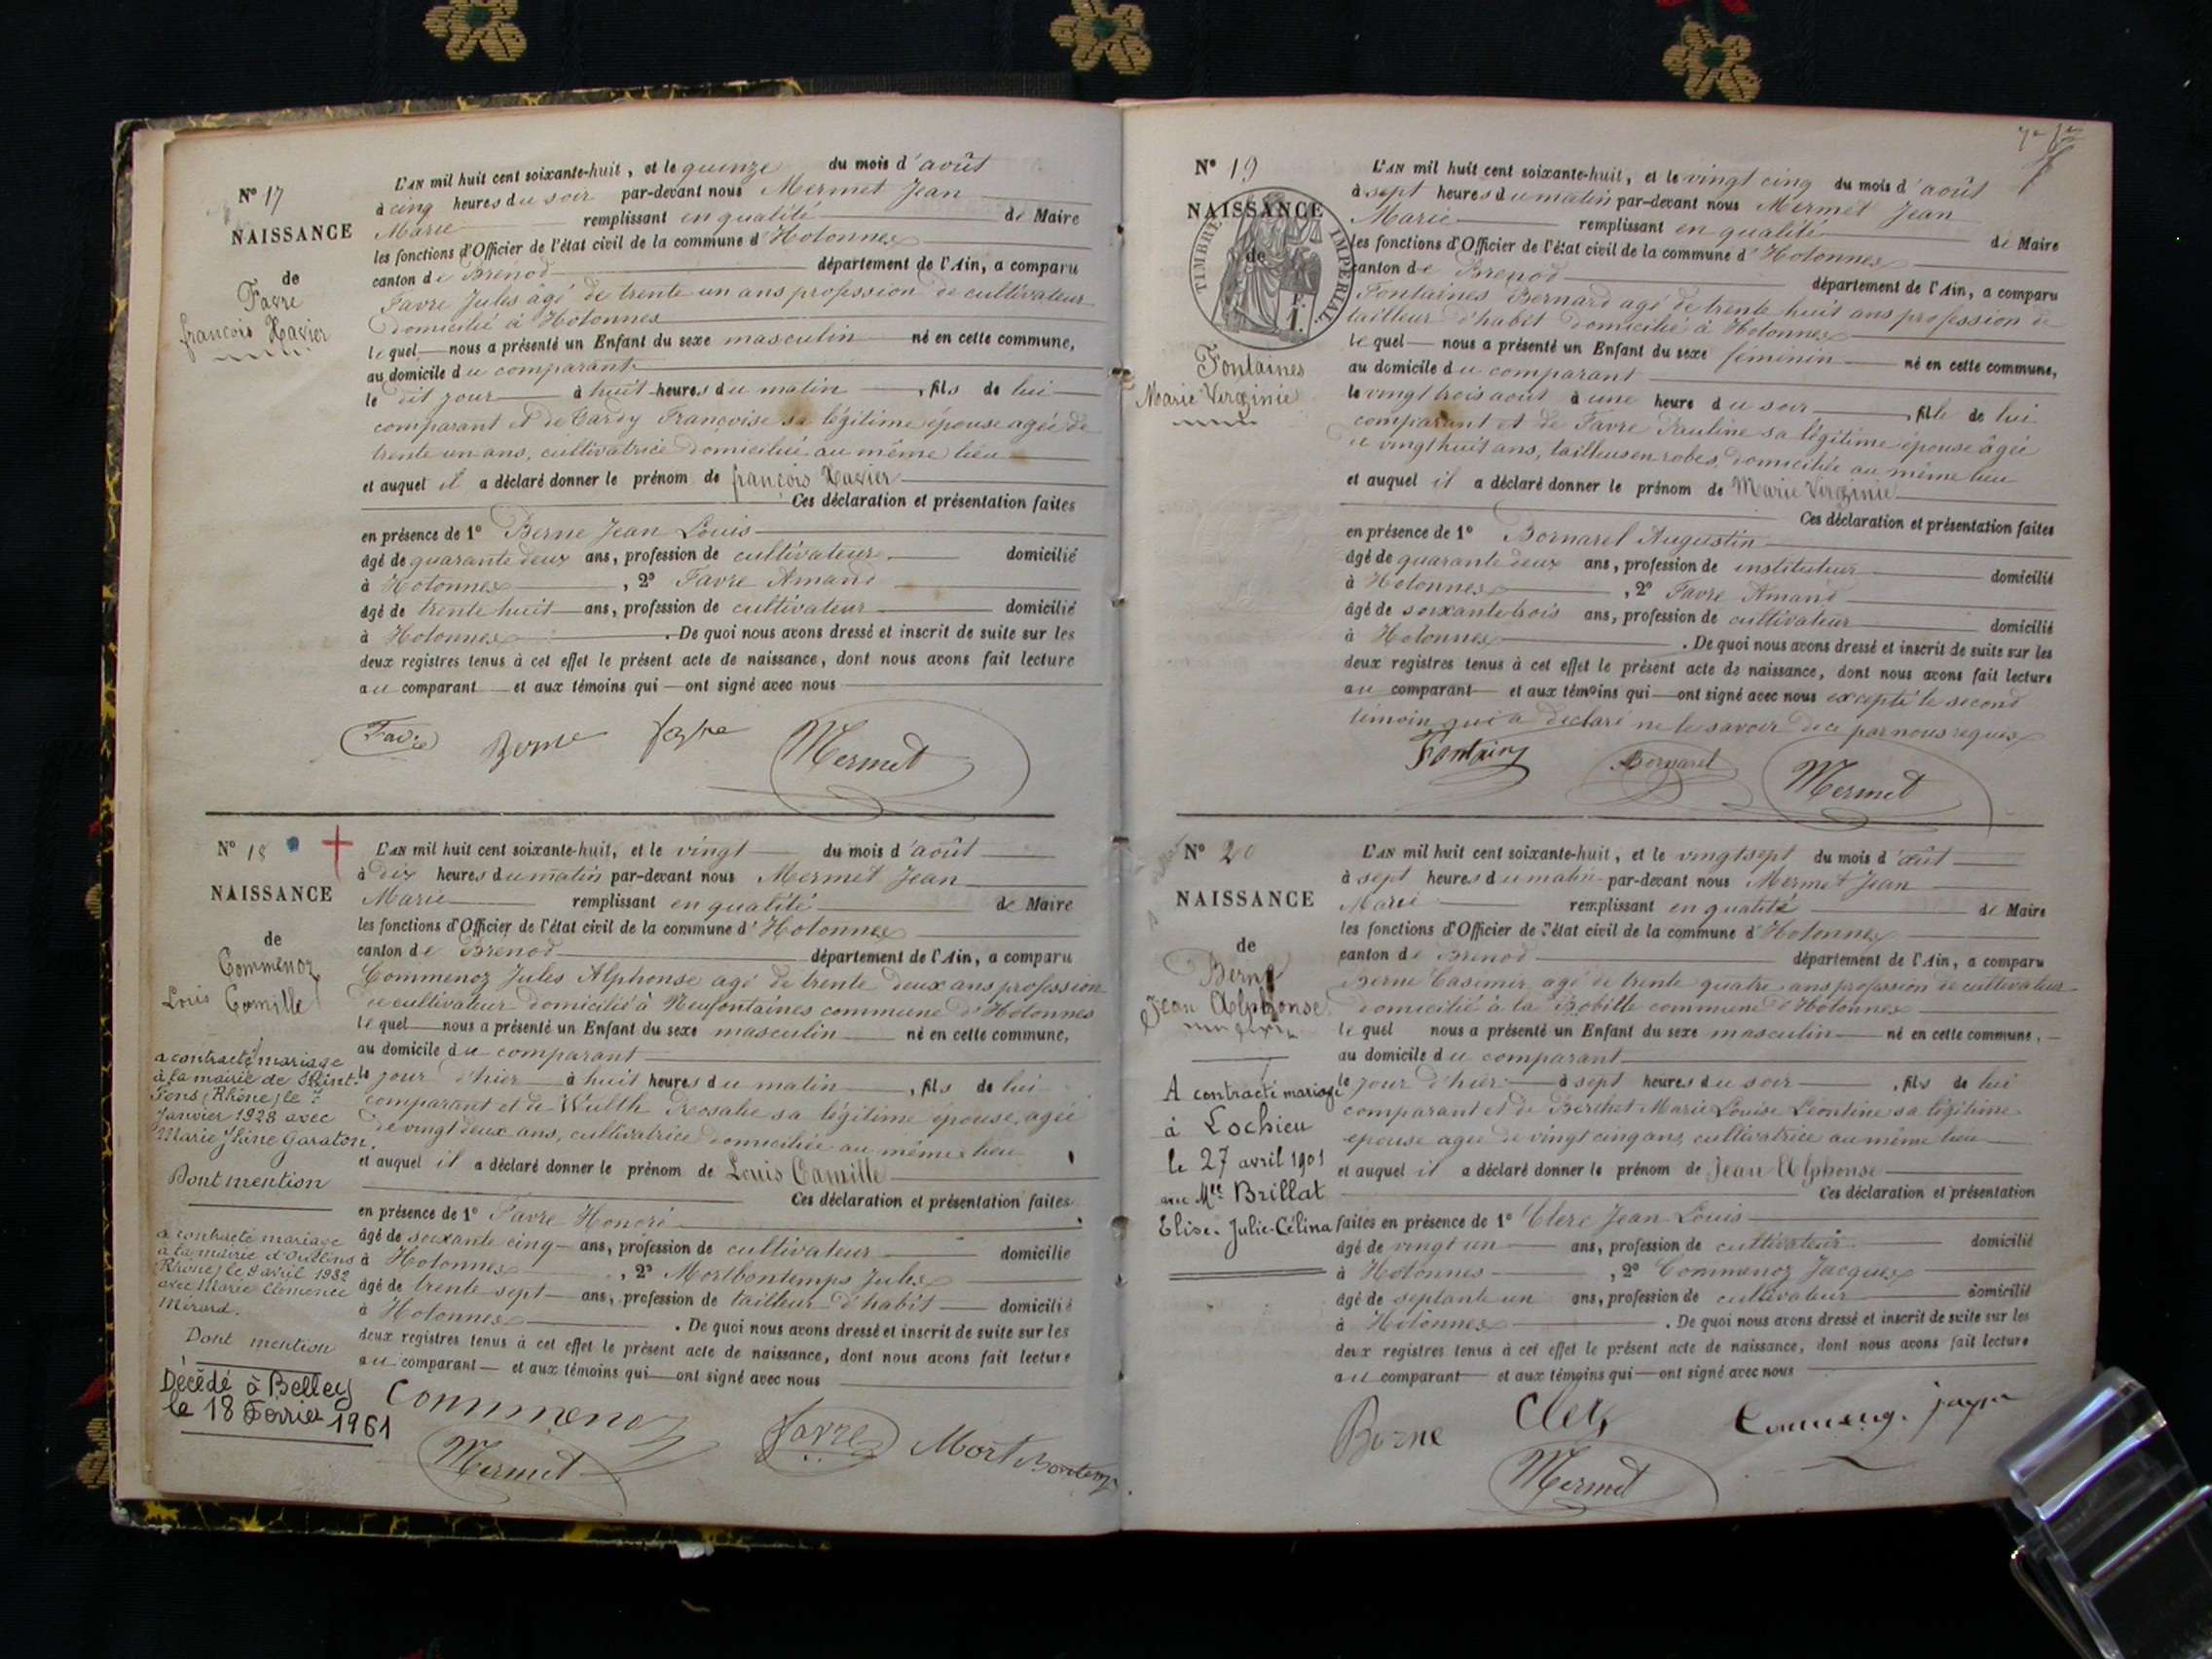 N° 17
NAISSANCE
de
Favre
françois Xavier
L'AN mil huit cent soixante-huit, et le quinze du mois d'août
à cinq heures du soir par-devant nous Mermet Jean
Marie remplissant en qualité de Maire
les fonctions d'Officier de l'état civil de la commune d'Hotonnes
canton de Brenod département de l'Ain, a comparu
Favre Jules âgé de trente un ans profession de cultivateur
domicilié à Hotonnes
le quel nous a présenté un Enfant du sexe masculin né en cette commune,
au domicile du comparant
le dit jour à huit heures du matin, fils de lui
comparant et de Cardy Françoise sa légitime épouse agée de
trente un ans, cultivatrice domiciliée au même lieu
et auquel il a déclaré donner le prénom de françois Xavier
Ces déclaration et présentation faites
en présence de 1° Berne Jean Louis
âgé de quarante deux ans, profession de cultivateur domicilié
à Hotonnes, 2° Favre Amand
âgé de trente huit ans, profession de cultivateur domicilié
à Hotonnes. De quoi nous avons dressé et inscrit de suite sur les
deux registres tenus à cet effet le présent acte de naissance, dont nous avons fait lecture
au comparant et aux témoins qui ont signé avec nous
Favre Berne favre Mermet
N° 18
NAISSANCE
de
Commenoz
Louis Camille
a contracté mariage
à la mairie de Saint-
Fons (Rhône) le 7
Janvier 1928 avec
Marie Garaton.
Dont mention
a contracté mariage
à la mairie d'Oullins
(Rhône) le 9 avril 1932
avec Marie Clémence
Mérard.
Dont mention
Décédé à Belley
le 18 Février 1961
L'AN mil huit cent soixante-huit, et le vingt du mois d'août
à dix heures du matin par-devant nous Mermet Jean
Marie remplissant en qualité de Maire
les fonctions d'Officier de l'état civil de la commune d'Hotonnes
canton de Brenod département de l'Ain, a comparu
Commenoz Jules Alphonse agé de trente deux ans profession
de cultivateur domicilié à Neufontaines commune d'Hotonnes
le quel nous a présenté un Enfant du sexe masculin né en cette commune,
au domicile du comparant
le jour d'hier à huit heures du matin, fils de lui
comparant et de Wulth Rosalie sa légitime épouse, agée
de vingt deux ans, cultivatrice domiciliée au même lieu
et auquel il a déclaré donner le prénom de Louis Camille
Ces déclaration et présentation faites
en présence de 1° Favre Honoré
âgé de soixante cinq ans, profession de cultivateur domicilié
à Hotonnes, 2° Mortbontemps Jules
âgé de trente sept ans, profession de tailleur d'habit domicilié
à Hotonnes. De quoi nous avons dressé et inscrit de suite sur les
deux registres tenus à cet effet le présent acte de naissance, dont nous avons fait lecture
au comparant et aux témoins qui ont signé avec nous
Commenoz Favre Mortbontemps
Mermet
N° 19
NAISSANCE
de
TIMBRE IMPÉRIAL
Fontaines
Marie Virginie
L'AN mil huit cent soixante-huit, et le vingt cinq du mois d'août
à sept heures du matin par-devant nous Mermet Jean
Marie remplissant en qualité de Maire
les fonctions d'Officier de l'état civil de la commune d'Hotonnes
canton de Brenod département de l'Ain, a comparu
Fontaines Bernard agé de trente huit ans profession de
tailleur d'habit domicilié à Hotonnes
le quel nous a présenté un Enfant du sexe féminin né en cette commune,
au domicile du comparant
le vingt trois aout à une heure du soir, fille de lui
comparant et de Favre Pauline sa légitime épouse âgée
de vingt huit ans, tailleus en robes, domiciliée au même lieu
et auquel il a déclaré donner le prénom de Marie Virginie
Ces déclaration et présentation faites
en présence de 1° Bornarel Augustin
âgé de quarante deux ans, profession de instituteur domicilié
à Hotonnes, 2° Favre Amand
âgé de soixante trois ans, profession de cultivateur domicilié
à Hotonnes. De quoi nous avons dressé et inscrit de suite sur les
deux registres tenus à cet effet le présent acte de naissance, dont nous avons fait lecture
au comparant et aux témoins qui ont signé avec nous excepté le second
témoin qui a déclaré ne le savoir de ce par nous requis
Fontaines Bornarel Mermet
N° 20
NAISSANCE
de
Berne
Jean Alphonse
A contracté mariage
à Lochieu
le 27 avril 1901
avec Mlle Brillat
Elise-Julie-Célina
L'AN mil huit cent soixante-huit, et le vingt sept du mois d'août
à sept heures du matin par-devant nous Mermet Jean
Marie remplissant en qualité de Maire
les fonctions d'Officier de l'état civil de la commune d'Hotonnes
canton de Brenod département de l'Ain, a comparu
Berne Casimir agé de trente quatre ans profession de cultivateur
domicilié à la commune d'Hotonnes
le quel nous a présenté un Enfant du sexe masculin né en cette commune,
au domicile du comparant
le jour d'hier à sept heures du soir, fils de lui
comparant et de Berthet Marie Louise Léontine sa légitime
épouse agée de vingt cinq ans, cultivatrice au même lieu
et auquel il a déclaré donner le prénom de Jean Alphonse
Ces déclaration et présentation
faites en présence de 1° Clerc Jean Louis
âgé de vingt un ans, profession de cultivateur domicilié
à Hotonnes, 2° Commenoz Jacques
âgé de septante un ans, profession de cultivateur domicilié
à Hotonnes. De quoi nous avons dressé et inscrit de suite sur les
deux registres tenus à cet effet le présent acte de naissance, dont nous avons fait lecture
au comparant et aux témoins qui ont signé avec nous
Berne Clerc
Mermet